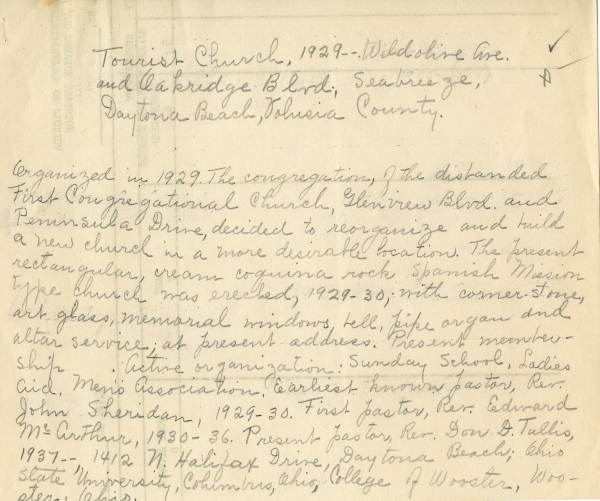 Tourist Church, 1929-- Wildolive Ave.
and Oakridge Blvd., Seabreeze,
Daytona Beach, Volusia County.
Organized in 1929. The congregation, of the disbanded
First Congregational Church, Glenview Blvd. and
Peninsula Drive, decided to reorganize and build
a new church in a more desirable location. The present
rectangular, cream coquina rock Spanish Mission
type church was erected, 1929-30; with corner-stone,
art glass, memorial windows, bell, pipe organ and
altar service; at present address. Present member-
ship : Active organization: Sunday School, Ladies
Aid. Men's Association. Earliest known pastor, Rev.
John Sheridan, 1929-30. First pastor, Rev. Edward
McArthur, 1930-36. Present pastor, Rev. Don D. Tullis,
1937--, 1412 N. Halifax Drive, Daytona Beach; Ohio
State University, Columbus, Ohio, College of Wooster, Woo-
ster, Ohio.